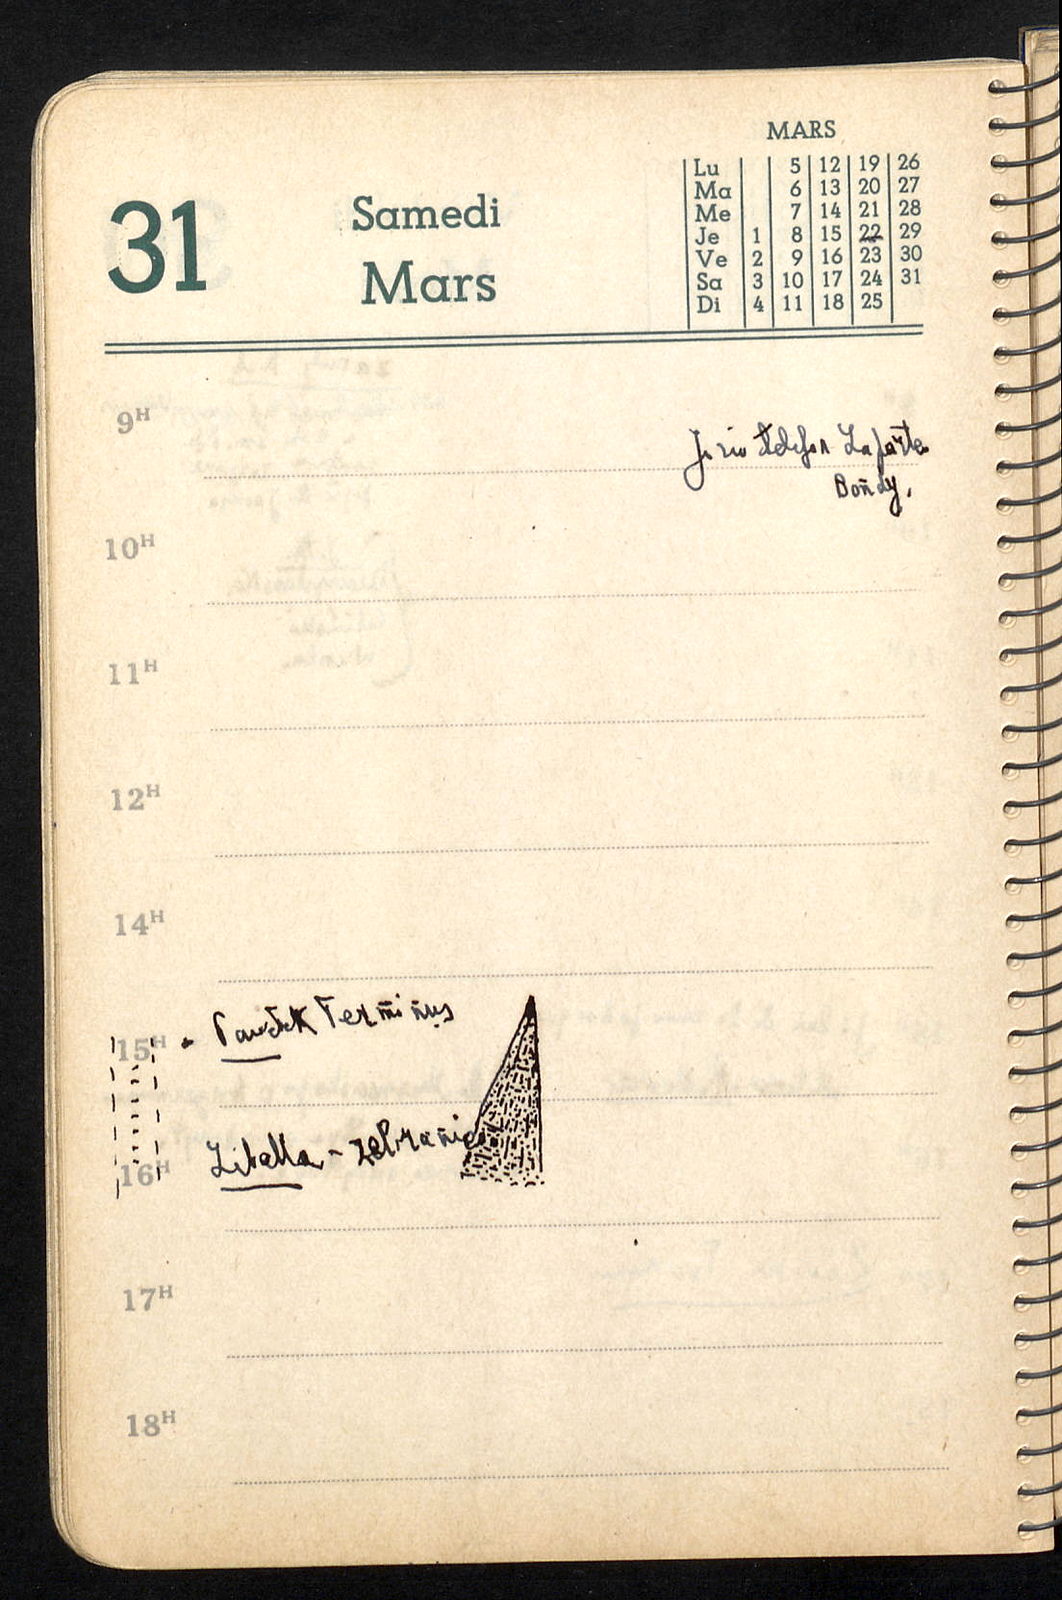 MARS
Lu 5 12 19 26
Ma 6 13 20 27
Me 7 14 21 28
Je 1 8 15 22 29
Ve 2 9 16 23 30
Sa 3 10 17 24 31
Di 4 11 18 25
31
Samedi
Mars
9H
Bondy.
10H
11H
12H
14H
Terminus
15H
Libella - zebranie
16H
17H
18H